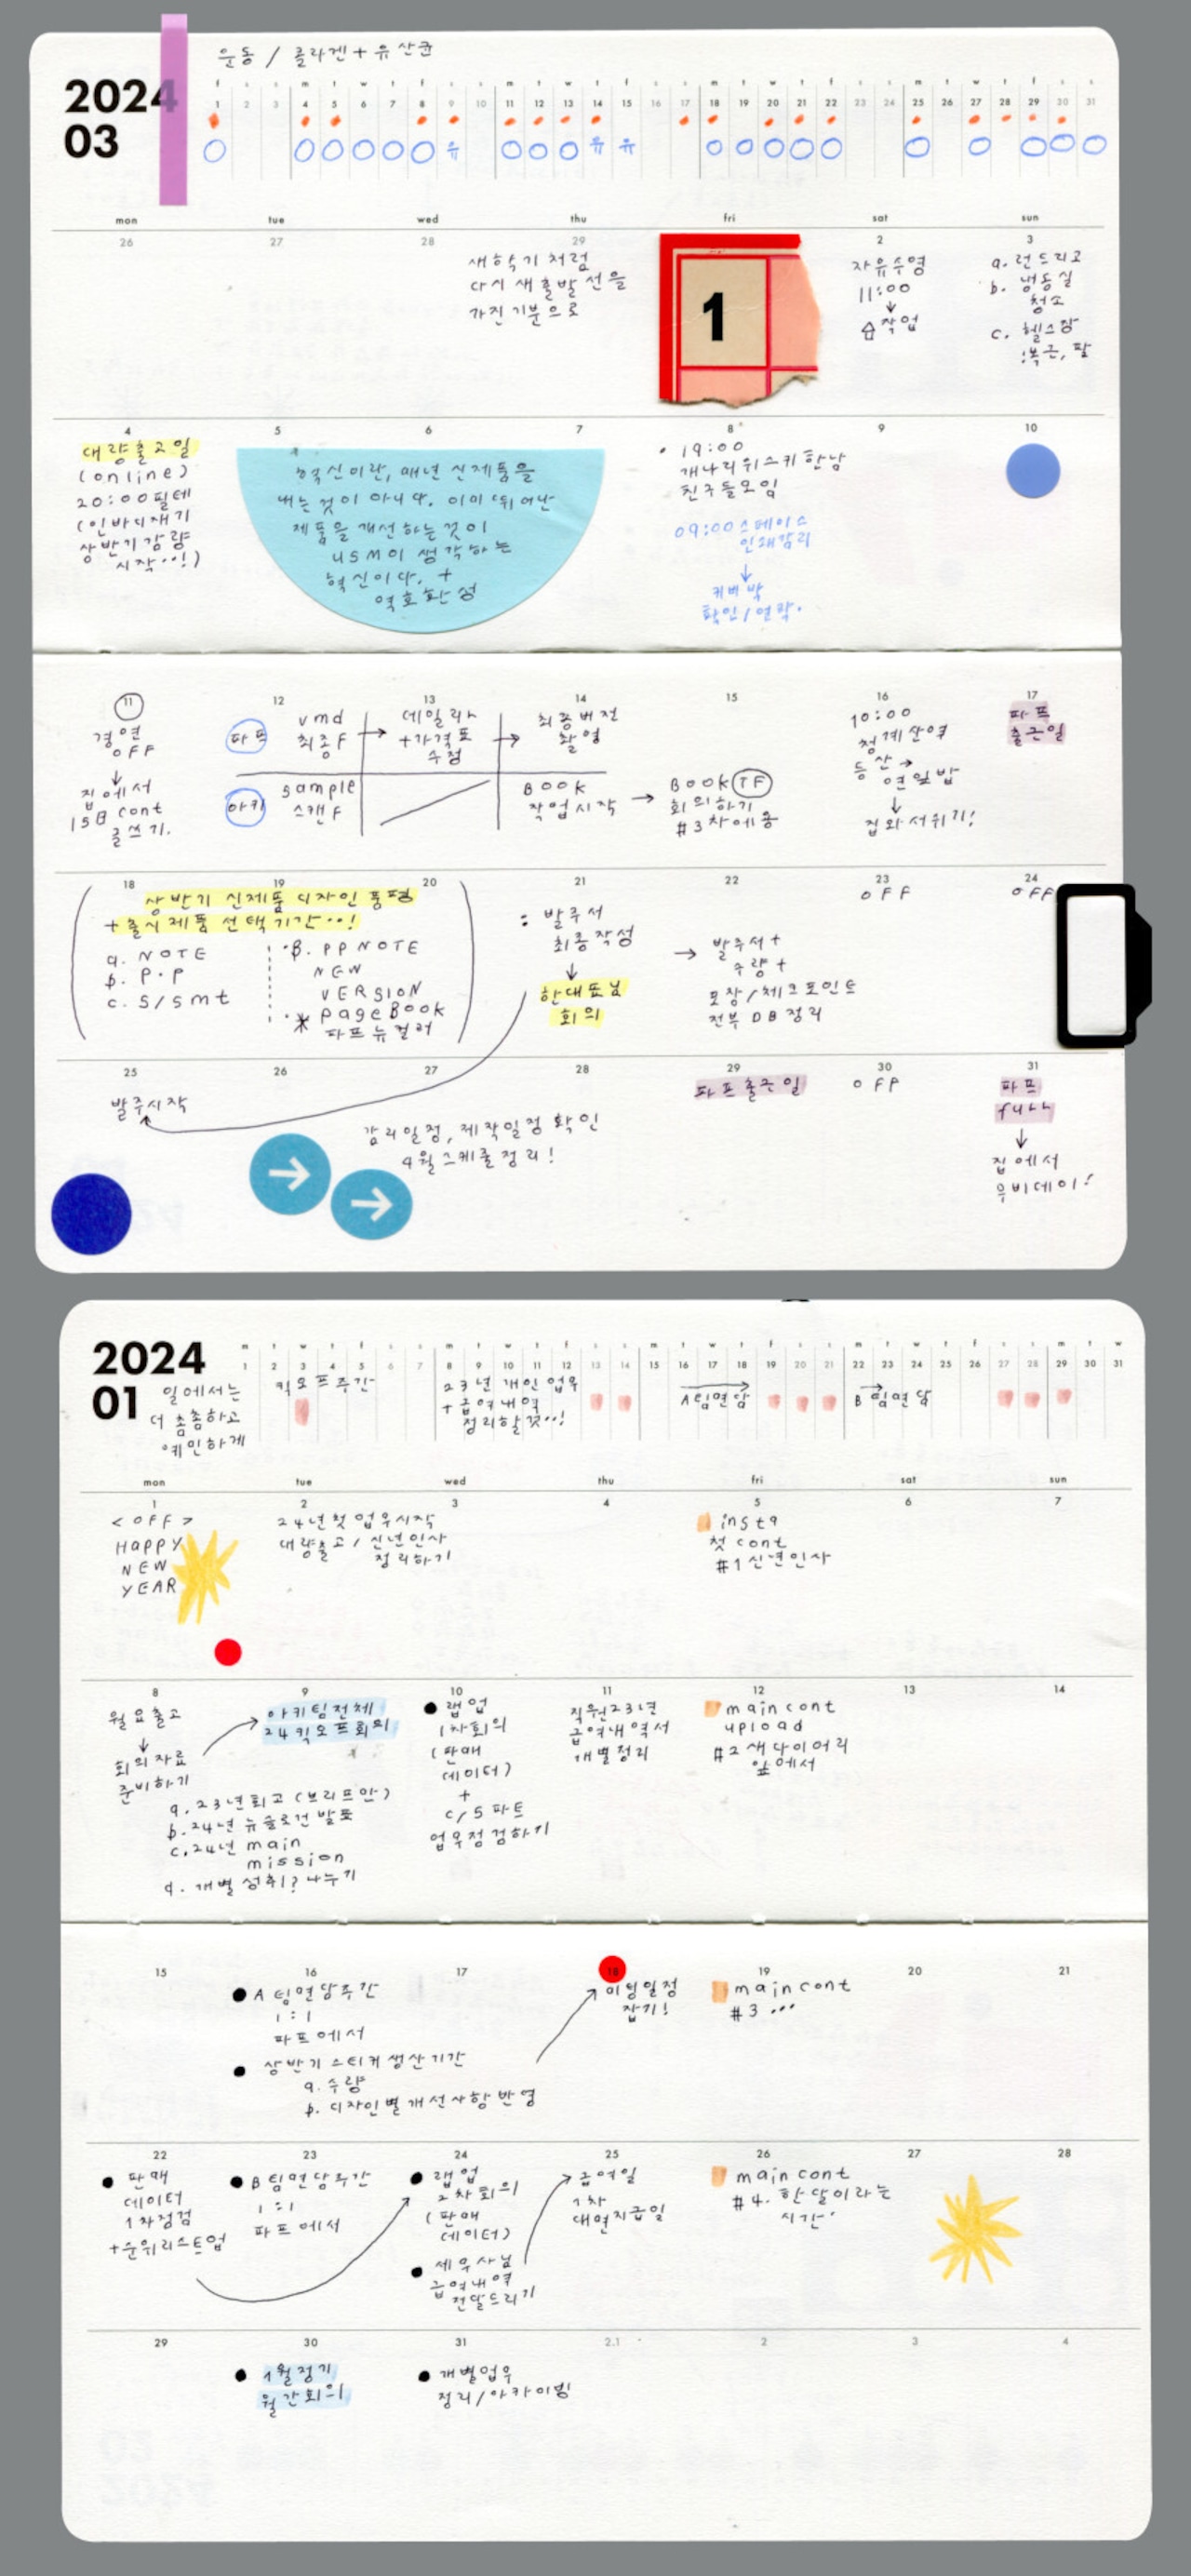 운동 / 콜라겐 + 유산균
2024
03
f s s m t w t f s s m t w t f s s m t w t f s s m t w t f s s
1 2 3 4 5 6 7 8 9 10 11 12 13 14 15 16 17 18 19 20 21 22 23 24 25 26 27 28 29 30 31
유 유 유
mon tue wed thu fri sat sun
26 27 28 29
새학기처럼
다시 새출발선을
가진 기분으로
1
2
자유수영
11:00
↓
작업
3
a. 런드리고
b. 냉동실
청소
c. 헬스장
:복근, 팔
4
대량출고일
(online)
20:00 필테
(인바디재기
상반기감량
시작..!)
5 6 7
혁신이란, 매년 신제품을
내는것이 아니다. 이미 뛰어난
제품을 개선하는것이
USM이 생각하는
혁신이다. +
역호환성
8
19:00
개나리위스키 한남
친구들모임
09:00 스페이스
인쇄감리
↓
커버박
확인/연락.
9 10
11
경연
OFF
↓
집에서
158 cont
글쓰기.
12
파프
vmd
최종F
→
아키
sample
스캔F
13
데일리ㅏ
+가격표
수정
→
14
최종버전
촬영
BOOK
작업시작
→
15
BOOK TF
회의하기
#3차내용
16
10:00
청계산역
등산 →
연잎밥
↓
집와서쉬기!
17
파프
출근일
18 19 20
상반기 신제품 디자인 품평
+ 출시제품 선택기간..!
a. NOTE
b. P.P
c. S/Smt
B. PP NOTE
NEW
VERSION
* Page Book
파프뉴컬러
21
: 발주서
최종작성
↓
한대표님
회의
→
22
발주서 +
수량 +
포장/체크포인트
전부 DB정리
23
OFF
24
OFF
25
발주시작
26 27 28
감리일정, 제작일정 확인
4월스케줄정리!
29
파프출근일
30
OFF
31
파프
full
↓
집에서
무비데이!
2024
01
일에서는
더 촘촘하고
예민하게
m t w t f s s m t w t f s s m t w t f s s m t w t f s s m t w
1 2 3 4 5 6 7 8 9 10 11 12 13 14 15 16 17 18 19 20 21 22 23 24 25 26 27 28 29 30 31
킥오프주간
23년 개인 업무
+ 급여내역
정리할것..!
A팀면담
B팀면담
mon tue wed thu fri sat sun
1
<OFF>
HAPPY
NEW
YEAR
2
24년첫업무시작
대량출고/신년인사
정리하기
3 4
5
insta
첫 cont
#1신년인사
6 7
8
월요출고
↓
회의자료
준비하기
9
아키팀전체
24킥오프회의
a. 23년회고(브리프만)
b. 24년 뉴슬로건 발표
c. 24년 main
mission
d. 개별성취? 나누기
10
랩업
1차회의
(판매
데이터)
+
c/s 파트
업무점검하기
11
직원23년
급여내역서
개별정리
12
main cont
upload
#2 새다이어리
앞에서
13 14
15
16
A팀면담주간
1:1
파프에서
상반기 스티커 생산기간
a. 수량
b. 디자인별개선사항반영
17
18
미팅일정
잡기!
19
main cont
#3 ...
20 21
22
판매
데이터
1차점검
+순위리스트업
23
B팀면담주간
1:1
파프에서
24
랩업
2차회의
(판매
데이터)
세무사님
급여내역
전달드리기
25
급여일
1차
대면지급일
26
main cont
#4. 한달이라는
시간
27 28
29
30
1월정기
월간회의
31
개별업무
정리/아카이빙
2.1 2 3 4